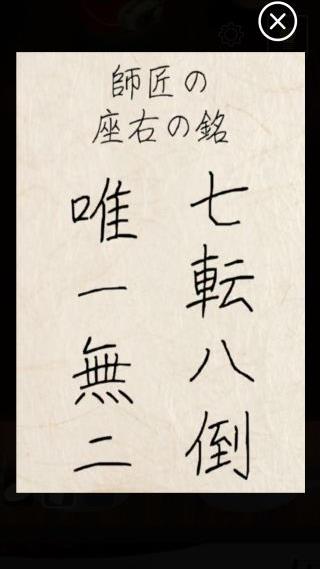 師匠の
座右の銘
七転八倒
唯一無二